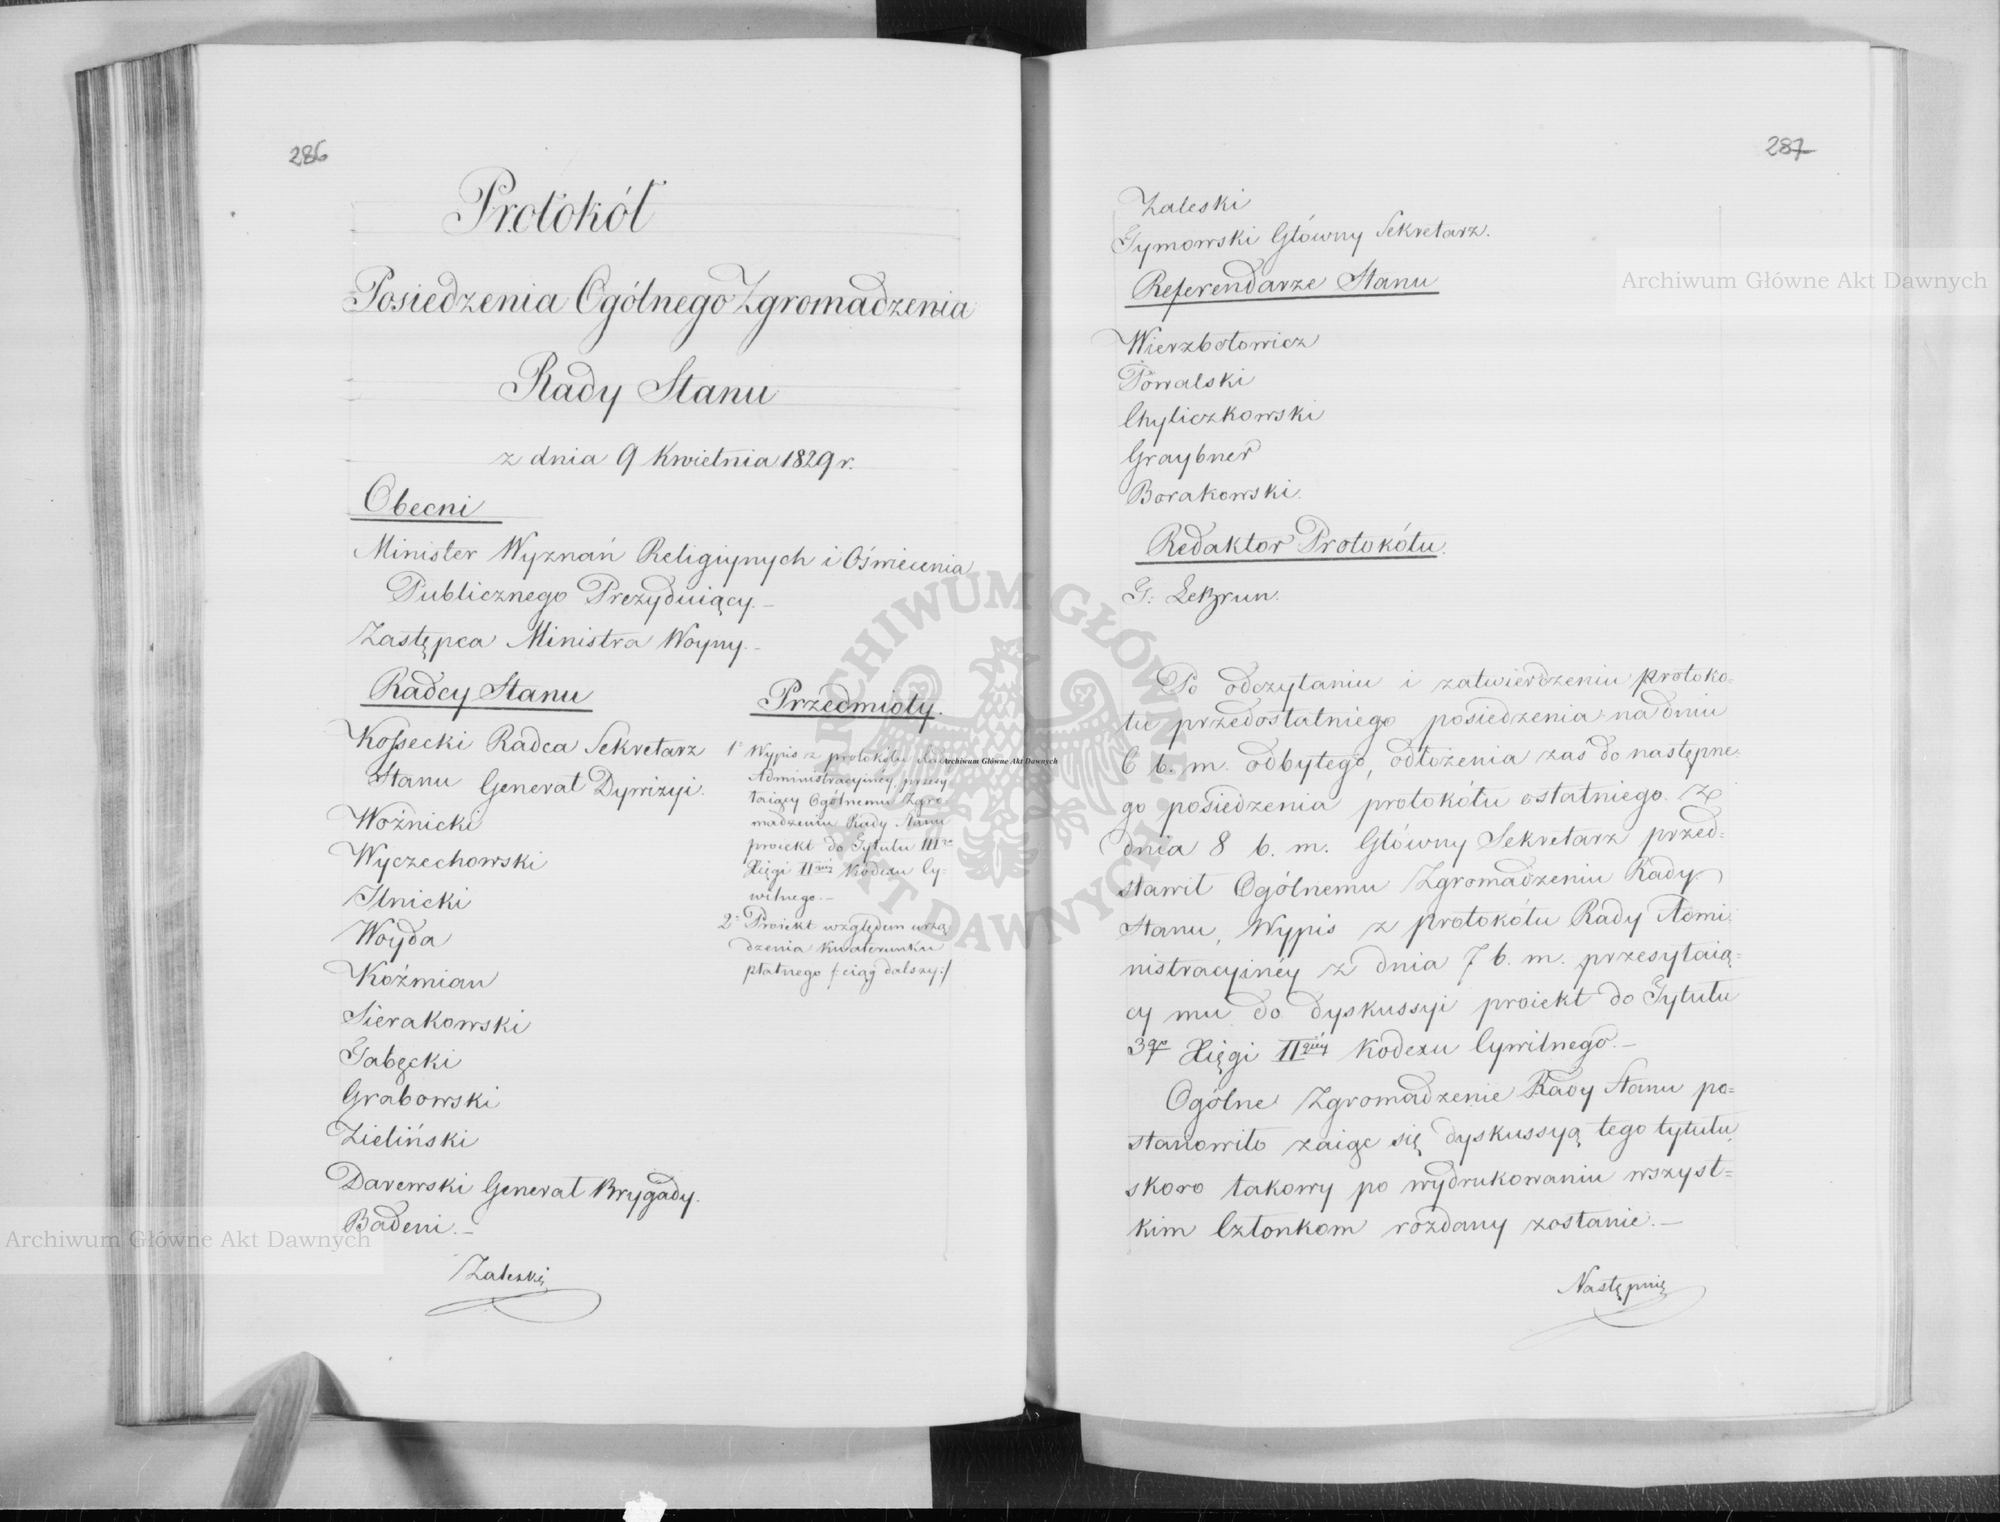 286
Protokół
Posiedzenia Ogólnego Zgromadzenia
Rady Stanu
z dnia 9 Kwietnia 1829 r.
Obecni
Minister Wyznań Religiynych i Oświecenia
Publicznego Prezyduiący.-
Zastępca Ministra Woyny.-
Radcy Stanu
Kossecki Radca Sekretarz
Stanu Generał Dywizyi.
Woźnicki
Wyczechowski
Ilnicki
Woyda
Koźmian
Sierakowski
Tabęcki
Grabowski
Zieliński
Darewski Generał Brygady.
Badeni.-
Zaleski
Przedmioty.
1° Wypis z protokółu
Administracyinéy, przesy
łaiący Ogólnemu Zgro-
madzeniu Rady Stanu
proiekt do Tytułu III go
Xięgi II giéy Kodexu Cy-
wilnego.-
2° Proiekt względem urzą
dzenia kwaterunku
płatnego /: ciąg dalszy :/
287
Zaleski
Tymowski Główny Sekretarz.
Referendarze Stanu
Wierzbołowicz
Powalski
Chyliczkowski
Graybner
Borakowski.
Redaktor Protokółu.
G:
Po odczytaniu i zatwierdzeniu protokó=
łu przedostatniego posiedzenia na dniu
6 b. m. odbytego, odłożenia zaś do następne
go posiedzenia protokółu ostatniego z
dnia 8 b. m. Główny Sekretarz przed=
stawił Ogólnemu Zgromadzeniu Rady
Stanu, Wypis z protokółu Rady Admi
nistracyinéy z dnia 7 b. m. przesyłaią=
cy mu do dyskussyi proiekt do Tytułu
3go Xięgi II giéy Kodexu Cywilnego.-
Ogólne Zgromadzenie Rady Stanu po=
stanowiło zaiąć się dyskussyą tego tytułu,
skoro takowy po wydrukowaniu wszyst=
kim Członkom rozdany zostanie.-
Następnie
Archiwum Główne Akt Dawnych
Archiwum Główne Akt Dawnych
Archiwum Główne Akt Dawnych
ARCHIWUM GŁÓWNE AKT DAWNYCH